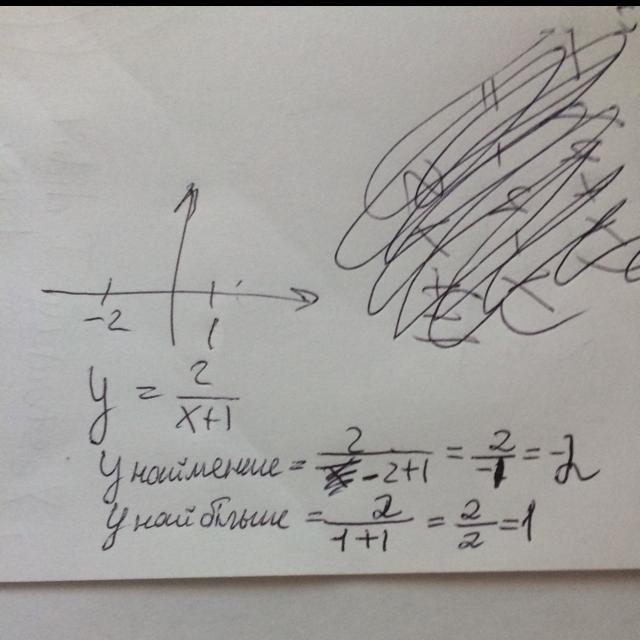 -2 1
y = 2/(x+1)
y найменше = 2/(-2+1) = 2/-1 = -2
y найбільше = 2/(1+1) = 2/2 = 1